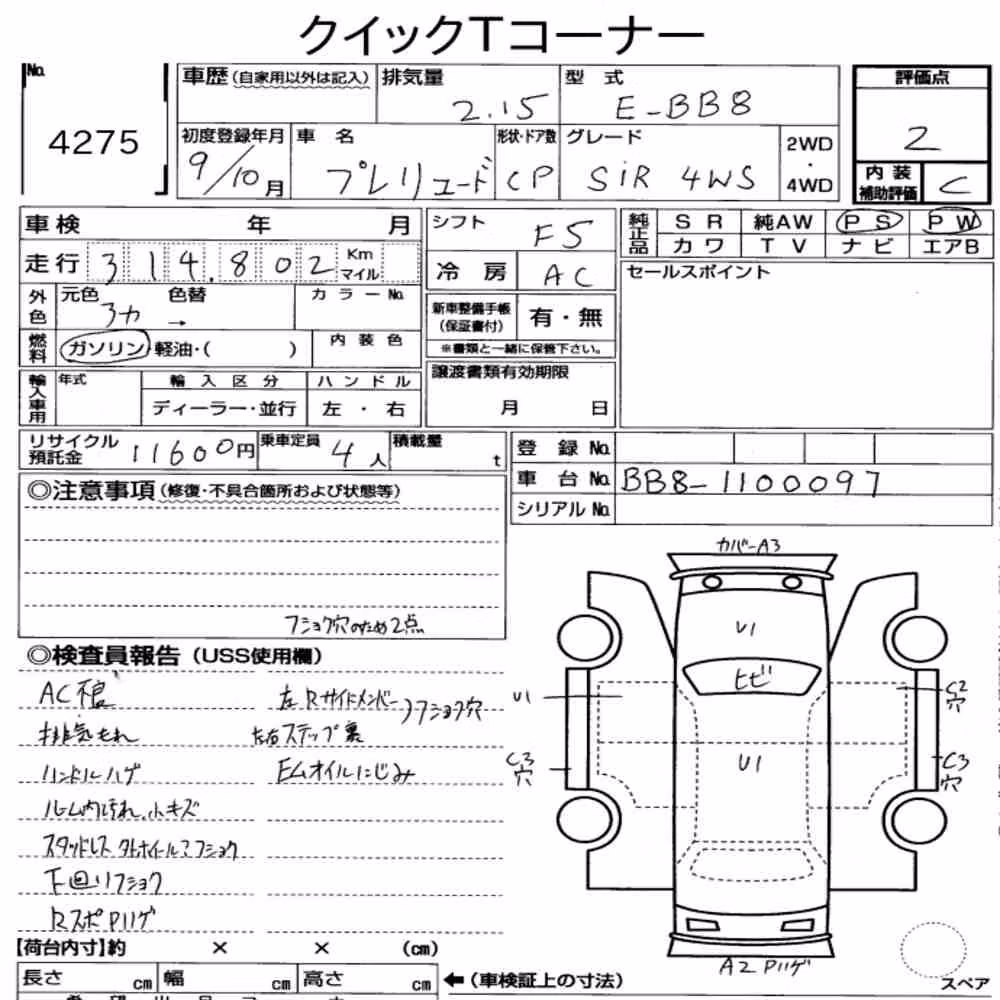 クイックTコーナー
No.
4275
車歴（自家用以外は記入） 排気量 2.15 型式 E-BB8
初度登録年月 9/10月 車名 プレリュード 形状・ドア数 CP グレード SiR 4WS 2WD・4WD
評価点 2
内装補助評価 C
車検 年 月
走行 314,802 Km マイル
シフト F5
冷房 AC
純正品 SR 純AW PS PW
カワ TV ナビ エアB
外色 元色 3カ → 色替 カラーNo.
燃料 ガソリン・軽油・( ) 内装色
新車整備手帳（保証書付） 有・無
※書類と一緒に保管下さい。
セールスポイント
輸入車用 年式 輸入区分 ハンドル
ディーラー・並行 左・右
譲渡書類有効期限
月 日
リサイクル預託金 11600円 乗車定員 4人 積載量 t
登録No.
車台No. BB8-1100097
シリアルNo.
◎注意事項（修復・不具合箇所および状態等）
フショク穴のため2点
◎検査員報告（USS使用欄）
AC
排気もれ
ハンドルハゲ
ルーム内汚れ、小キズ
スタッドレス
下回りフショク
RスポPハゲ
左Rサイドメンバー フショク穴
左右ステップ裏
EMオイルにじみ
カバーA3
U1
ヒビ
U1
U1
C3穴
C2穴
C3穴
A2 Pハゲ
スペア
【荷台内寸】約 × × （cm）
長さ cm 幅 cm 高さ cm ←（車検証上の寸法）